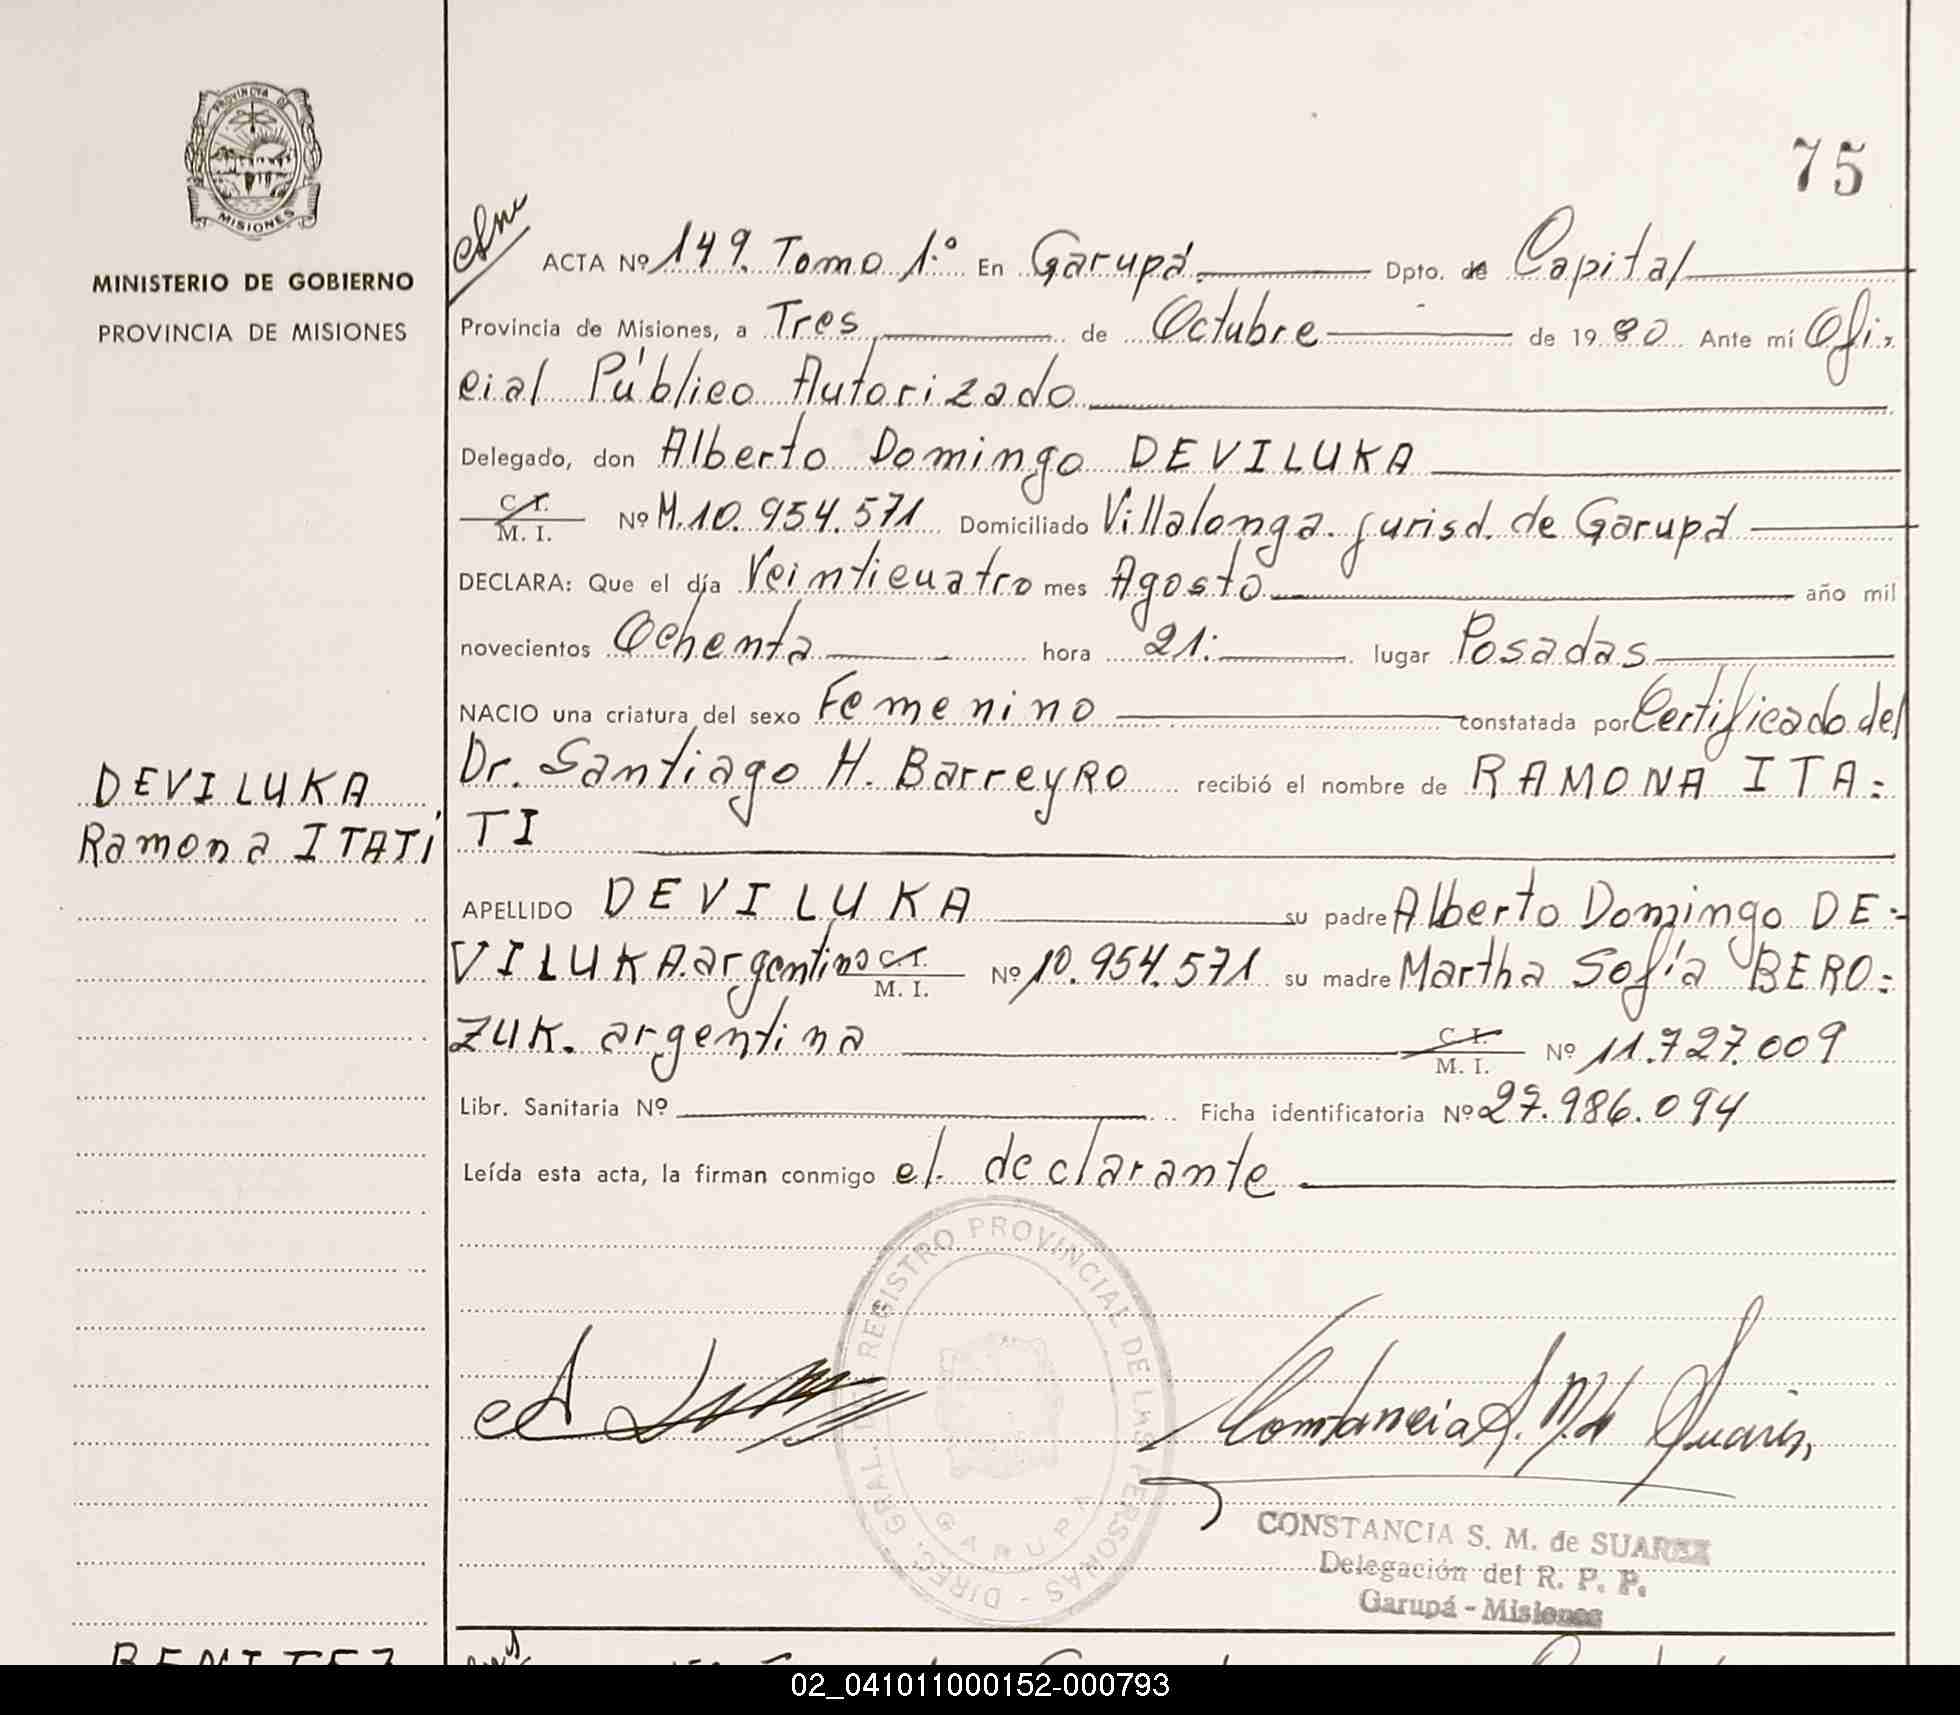 PROVINCIA DE
MISIONES
MINISTERIO DE GOBIERNO
PROVINCIA DE MISIONES
75
ACTA Nº 149. Tomo 1.º En Garupá Dpto. de Capital
Provincia de Misiones, a Tres de Octubre de 1980 Ante mí Ofi-
cial Público Autorizado
Delegado, don Alberto Domingo DEVILUKA
C. I.
M. I. Nº M. 10.954.571 Domiciliado Villalonga. jurisd. de Garupá
DECLARA: Que el día Veinticuatro mes Agosto año mil
novecientos Ochenta hora 21: lugar Posadas
NACIO una criatura del sexo Femenino constatada por Certificado del
Dr. Santiago H. Barreyro recibió el nombre de RAMONA ITA=
TI
DEVILUKA
Ramona ITATÍ
APELLIDO DEVILUKA su padre Alberto Domingo DE=
VILUKA. argentino C. I.
M. I. Nº 10.954.571 su madre Martha Sofía BERO=
ZUK. argentina C. I.
M. I. Nº 11.727.009
Libr. Sanitaria Nº Ficha identificatoria Nº 27.986.094
Leída esta acta, la firman conmigo el. declarante
DIREC. GRAL. DEL REGISTRO PROVINCIAL DE LAS PERSONAS -
GARUPA
Constancia S. M. de Suarez
CONSTANCIA S. M. de SUAREZ
Delegación del R. P. P.
Garupá - Misiones
BENITEZ
02_041011000152-000793